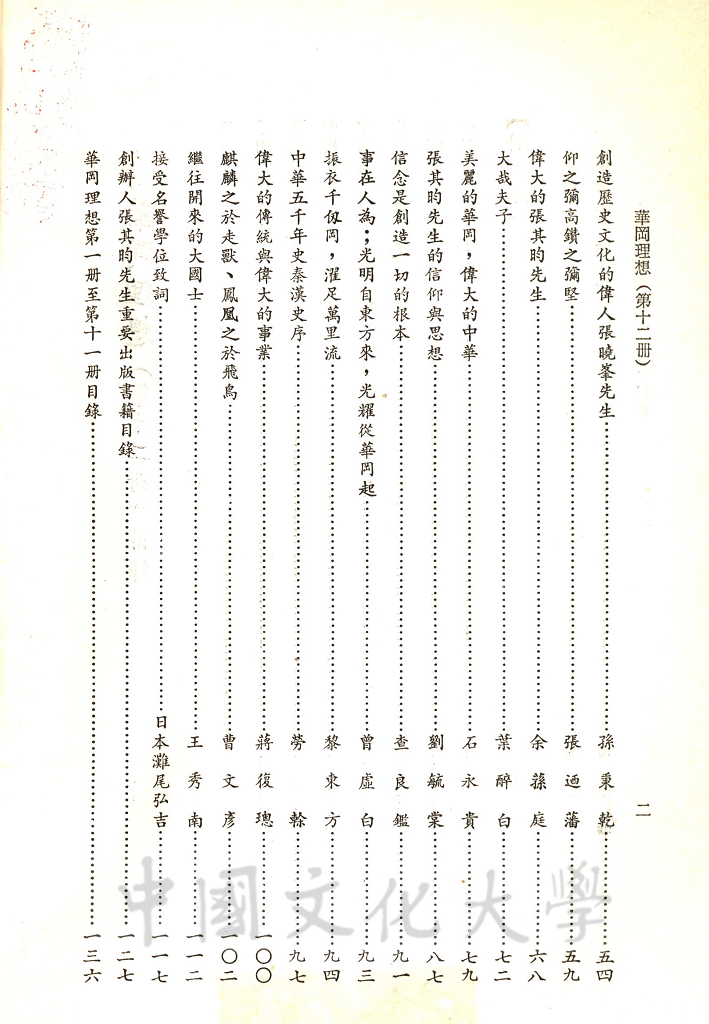 華岡理想（第十二册）
二
創造歷史文化的偉人張曉峯先生……孫秉乾……五四
仰之彌高鑽之彌堅……張迺藩……五九
偉大的張其昀先生……余蓀庭……六八
大哉夫子……葉醉白……七二
美麗的華岡，偉大的中華……石永貴……七九
張其昀先生的信仰與思想……劉毓棠……八七
信念是創造一切的根本……查良鑑……九一
事在人為；光明自東方來，光耀從華岡起……曾虛白……九三
振衣千仭岡，濯足萬里流……黎東方……九四
中華五千年史秦漢史序……勞榦……九七
偉大的傳統與偉大的事業……蔣復璁……一〇〇
麒麟之於走獸、鳳凰之於飛鳥……曹文彥……一〇二
繼往開來的大國士……王秀南……一一二
接受名譽學位致詞……日本灘尾弘吉……一一七
創辦人張其昀先生重要出版書籍目錄……一二七
華岡理想第一册至第十一册目錄……一三六
中國文化大學